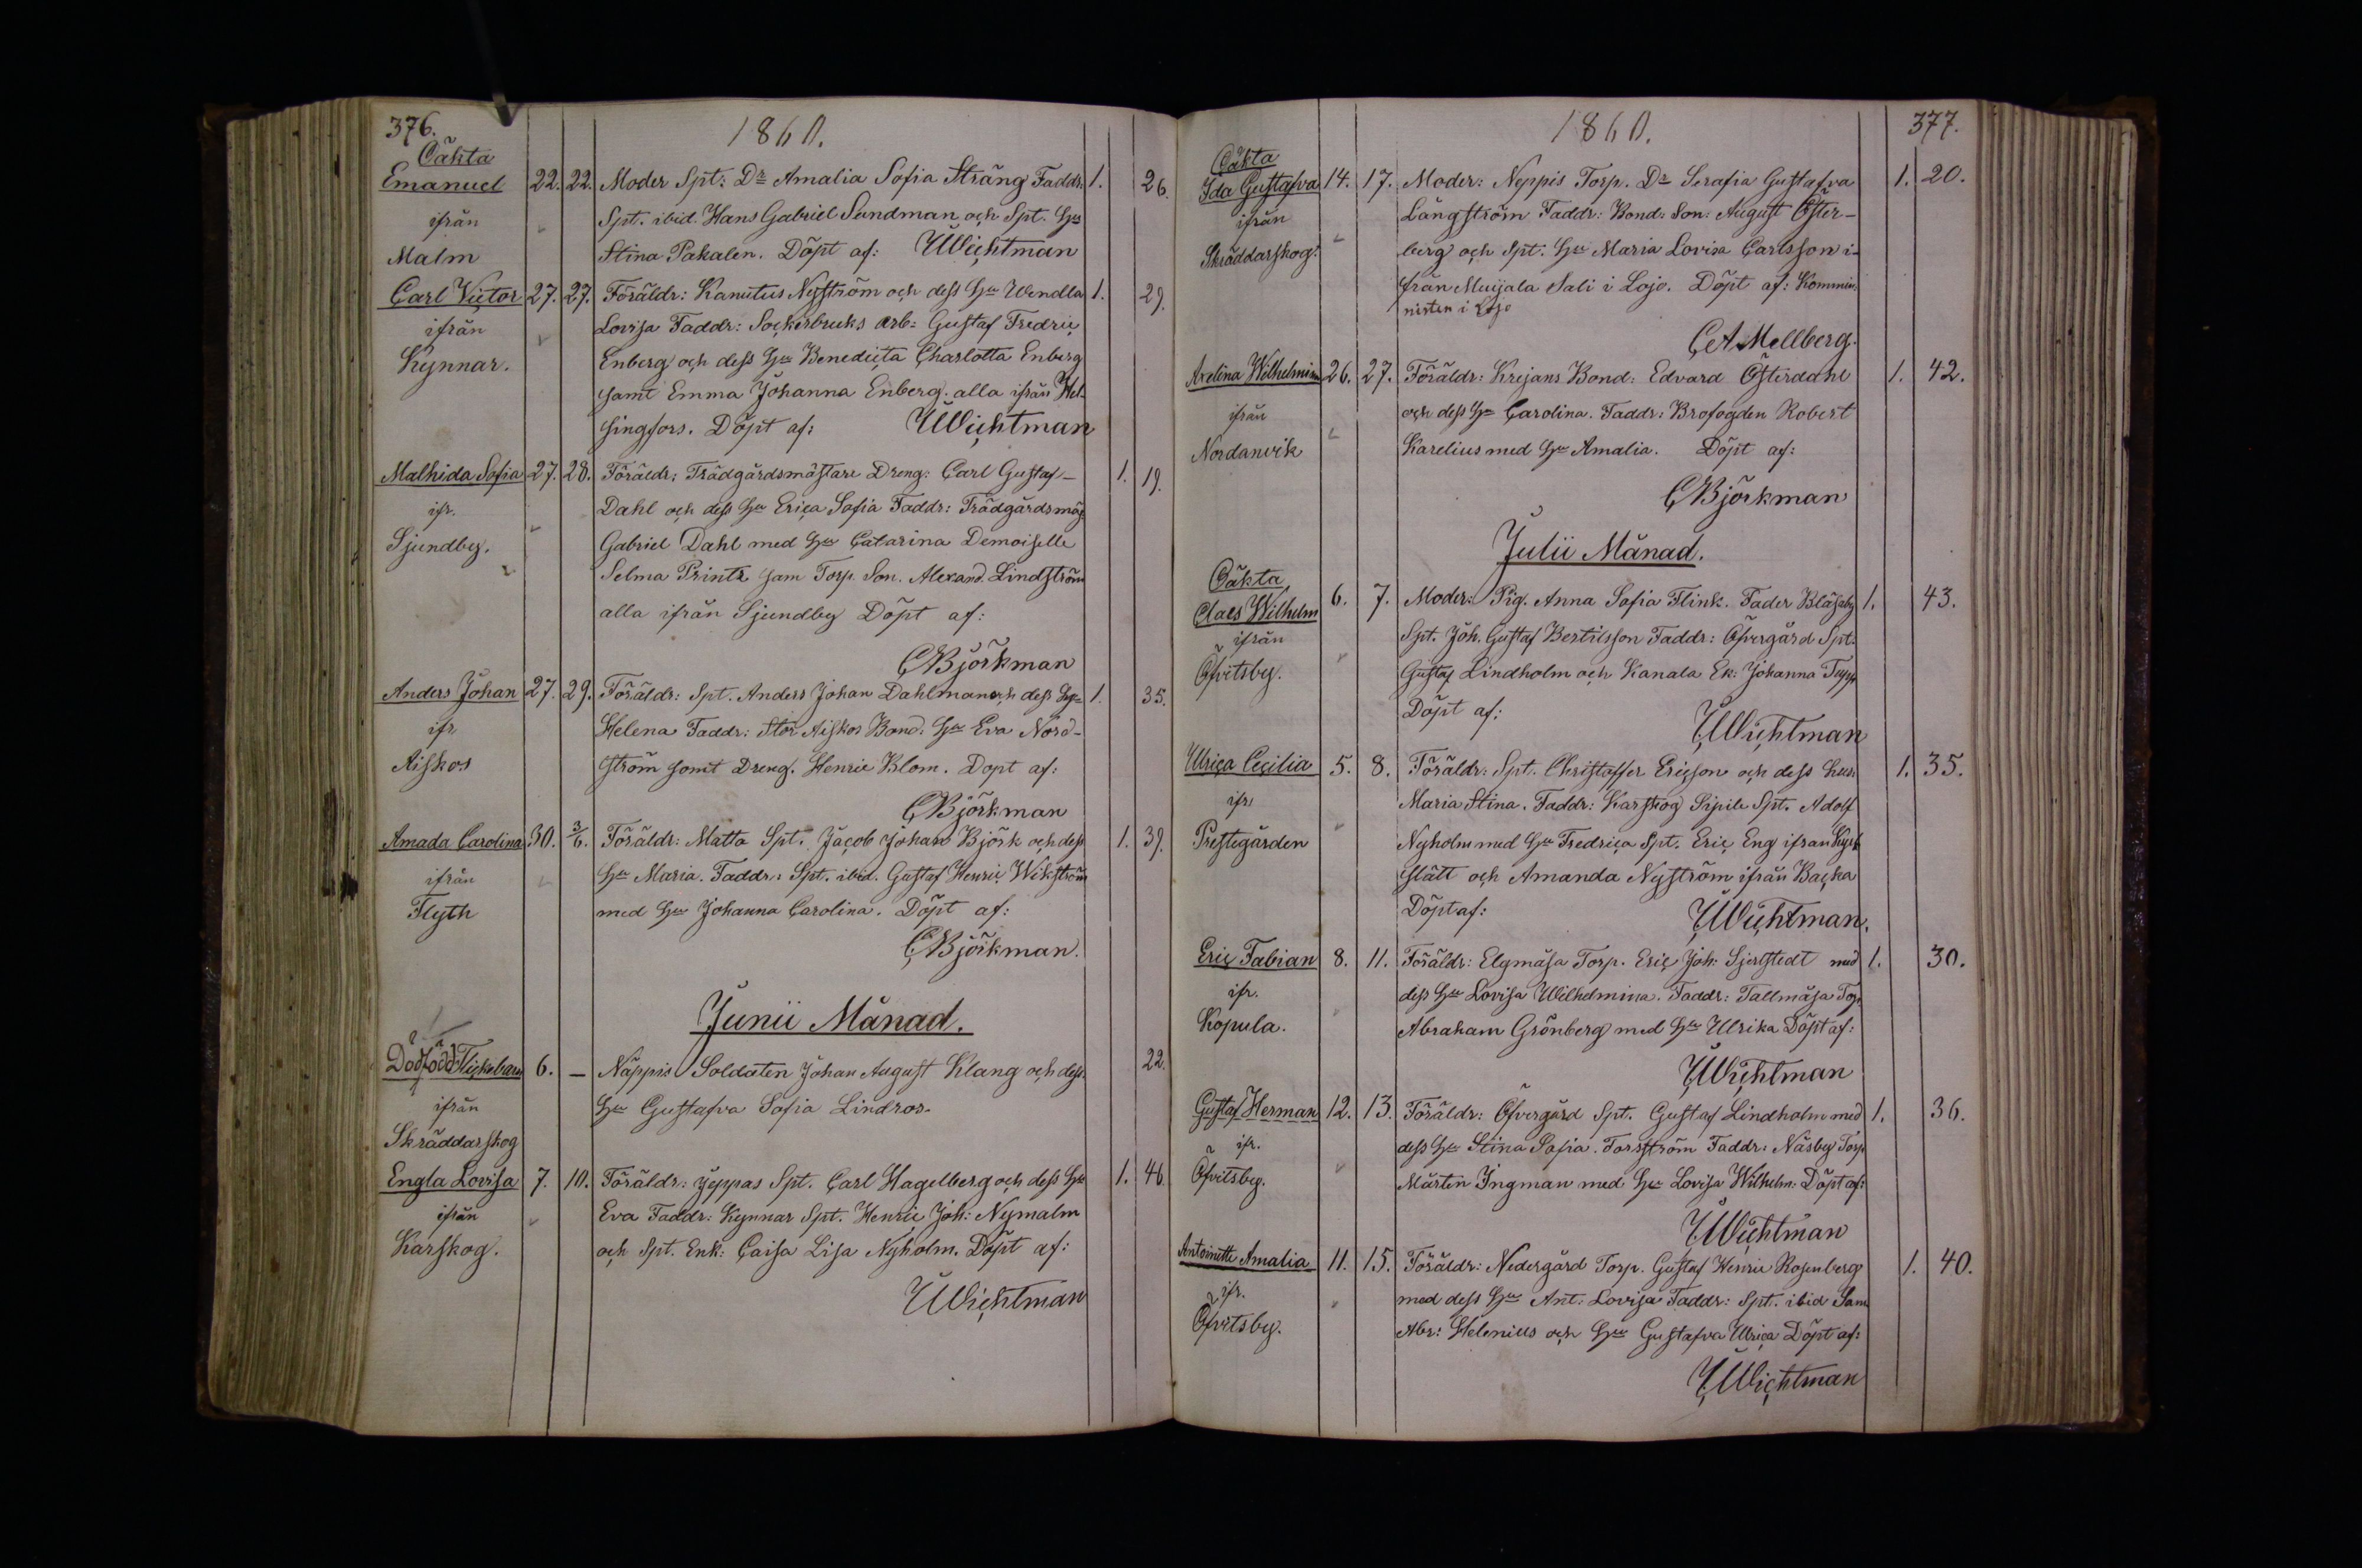 376.
1860.
Oäkta
Emanuel 22. 22. Moder Spt: Dr Amalia Sofia Sträng Faddr: 1. 26.
ifrån Spt. ibid. Hans Gabriel Sundman och Spt. Hu
Malm Stina Pakalen. Döpt af: Wichtman
Carl Victor 27. 27. Föräldr: Kanutus Nyström och dess Hu Wendla 1. 29.
ifrån Lovisa Faddr: Sockerbruks arb: Gustaf Fredric
Kynnar. Enberg och dess Hu Benedicta Charlotta Enberg
samt Emma Johanna Enberg. alla ifrån Hel-
singfors. Döpt af: Wichtman
Mathida Sofia 27. 28. Föräldr: Trädgårdsmästare Dreng: Carl Gustaf 1. 19.
ifr. Dahl och dess Hu Erica Sofia Faddr: Trädgårdsmäs
Sjundby. Gabriel Dahl med Hu Catarina Demoiselle
Selma Printz sam Torp. Son. Alexand. Lindström
alla ifrån Sjundby Döpt af:
CBjörkman
Anders Johan 27. 29. Föräldr: Spt. Anders Johan Dahlman och dess Hu 1. 35.
ifr. Helena Faddr: Stor Aiskos Bond: Hu Eva Nord-
Aiskos ström samt Dreng. Henric Blom. Döpt af:
CBjörkman
Amada Carolina 30. 3/6. Föräldr: Matta Spt. Jacob Johan Björk och dess 1. 39.
ifrån Hu Maria. Faddr: Spt. ibid. Gustaf Henric Wikström
Flyth med Hu Johanna Carolina. Döpt af:
CBjörkman.
Junii Månad.
Dödfödd Flickebarn 6. — Näppis Soldaten Johan August Klang och dess 22.
ifrån Hu Gustafva Sofia Lindros.
Skräddarskog
Engla Lovisa 7. 10. Föräldr: Jeppas Spt. Carl Hagelberg och dess Hu 1. 46.
ifrån Eva Faddr: Kynnar Spt. Henric Joh: Nymalm
Karskog. och Spt. Enk: Caisa Lisa Nyholm. Döpt af:
Wichtman
1860. 377.
Oäkta
Ida Gustafva 14. 17. Moder: Neppis Torp. Dr Serafia Gustafva 1. 20.
ifrån Långström Faddr: Bond: Son: August Öster-
Skräddarskog. berg och Spt: Hu Maria Lovisa Carlsson i-
från Muijala Sali i Lojo. Döpt af: Kommi-
nisten i Lojo
CAMellberg.
Axelina Wilhelmina 26. 27. Föräldr: Krejans Bond: Edvard Österdahl 1. 42.
ifrån och dess Hu Carolina. Faddr: Brofogden Robert
Nordanvik Karelius med Hu Amalia. Döpt af:
CBjörkman
Julii Månad.
Oäkta
Claes Wilhelm 6. 7. Moder: Pig. Anna Sofia Flink. Fader Blåsaby 1. 43.
ifrån Spt. Joh. Gustaf Bertilsson Faddr: Öfvergård Spt.
Öfvitsby. Gustaf Lindholm och Kanala Ek: Johanna
Döpt af: Wichtman
Ulrica Cecilia 5. 8. Föräldr: Spt. Christaffer Ericson och dess hus: 1. 35.
ifr. Maria Stina. Faddr: Karskog Pipile Spt. Adolf
Prestegården Nyholm med Hu Fredrica Spt. Eric Eng ifran Kyrk
slätt och Amanda Nyström ifrån Backa
Döpt af: Wichtman.
Eric Fabian 8. 11. Föräldr: Elgmåsa Torp. Eric Joh: Sjerfstedt med 1. 30.
ifr. dess Hu Lovisa Wilhelmina. Faddr: Tallmåsa Torp
Kopula. Abraham Grönberg med Hu Ulrika Döpt af:
Wichtman
Gustaf Herman 12. 13. Föräldr: Öfvergård Spt. Gustaf Lindholm med 1. 36.
ifr. dess Hu Stina Sofia. Forsström Faddr: Näsby Torp
Öfvitsby. Mårten Ingman med Hu Lovisa Wilhelm: Döpt af:
Wichtman
Antoinette Amalia 11. 15. Föräldr: Nedergård Torp. Gustaf Henric Rosenberg 1. 40.
ifr. med dess Hu Ant: Lovisa Faddr: Spt. ibid Sam
Öfvitsby. Abr: Helenius och Hu Gustafva Ulrica Döpt af:
Wichtman